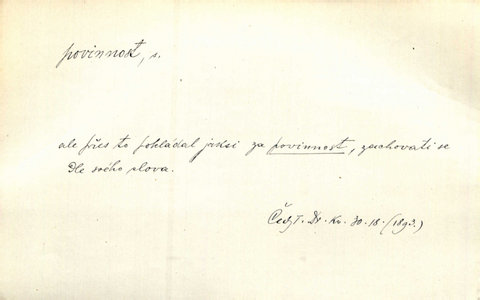 povinnost, s.
ale přes to pokládal jaksi za povinnost, zachovati se
dle svého slova.
Kv. 30. 18. (1893.)